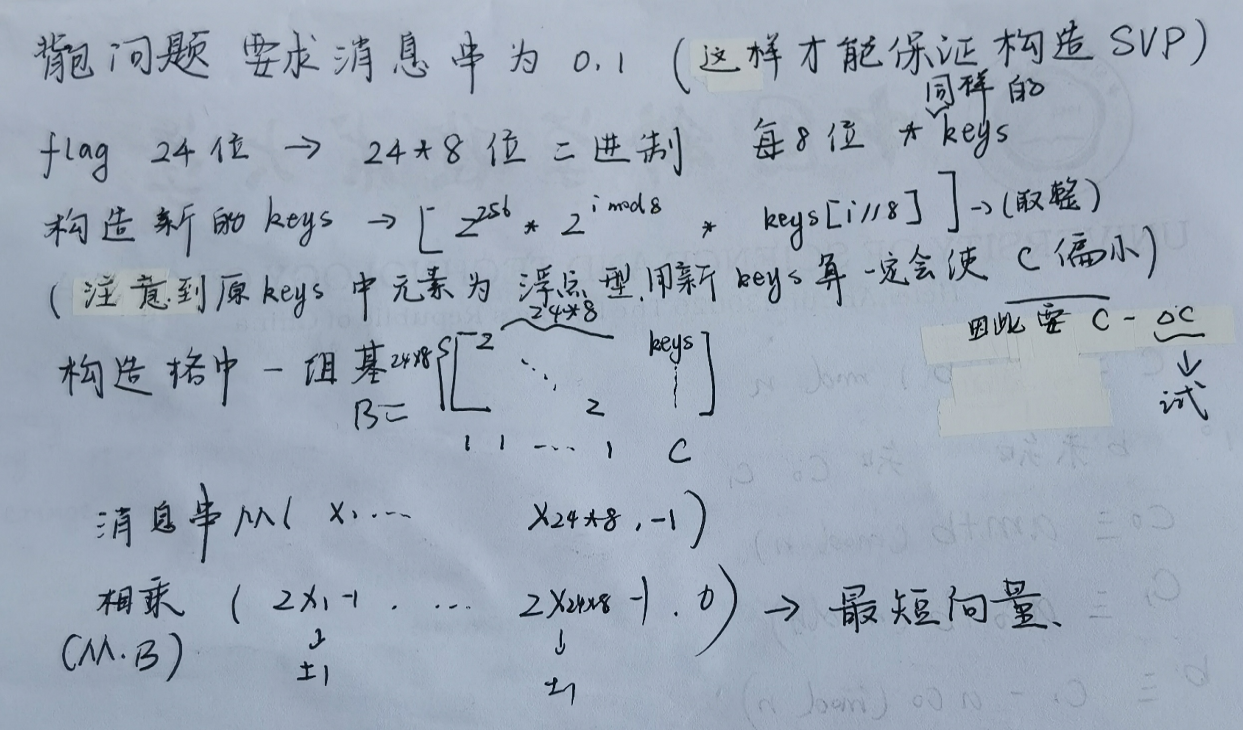 背包问题 要求消息串为 0.1 (这样才能保证构造 SVP)
flag 24位 → 24*8位二进制 每8位 * 同样的 keys
构造新的 keys → [ 2^256 * 2^(i mod 8) * keys[i//8] ] → (取整)
(注意到原 keys 中元素为浮点型,用新 keys 算一定会使 C 偏小)
因此要 C - ΔC
↓
试
24*8
构造格中一组基 24*8 { [ 2 keys
⋱ ⋮
B= 2 ]
1 1 ... 1 C
消息串 M( x1 ... x24*8 , -1 )
相乘 ( 2x1-1 , .... 2x24*8 -1 , 0 ) → 最短向量、
(M.B) ↓ ↓
±1 ±1